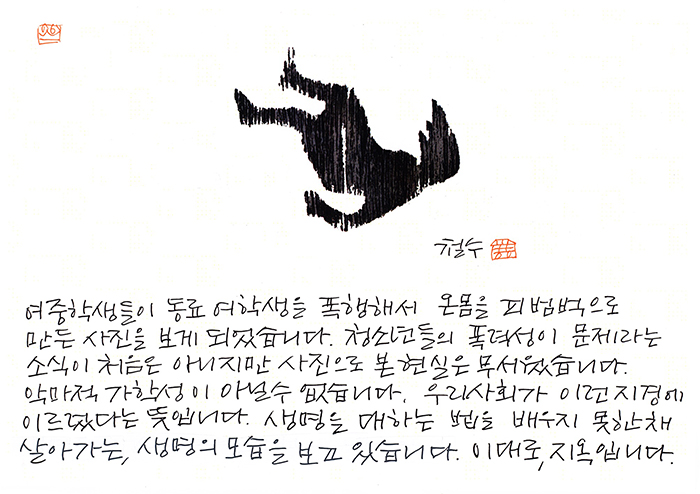 철수
여중학생들이 동료 여학생을 폭행해서 온몸을 피범벅으로
만든 사진을 보게 되었습니다. 청소년들의 폭력성이 문제라는
소식이 처음은 아니지만 사진으로 본 현실은 무서웠습니다.
악마적 가학성이 아닐수 없습니다. 우리사회가 이런지경에
이르렀다는 뜻입니다. 생명을 대하는 법을 배우지 못한채
살아가는, 생명의 모습을 보고 있습니다. 이대로, 지옥입니다.